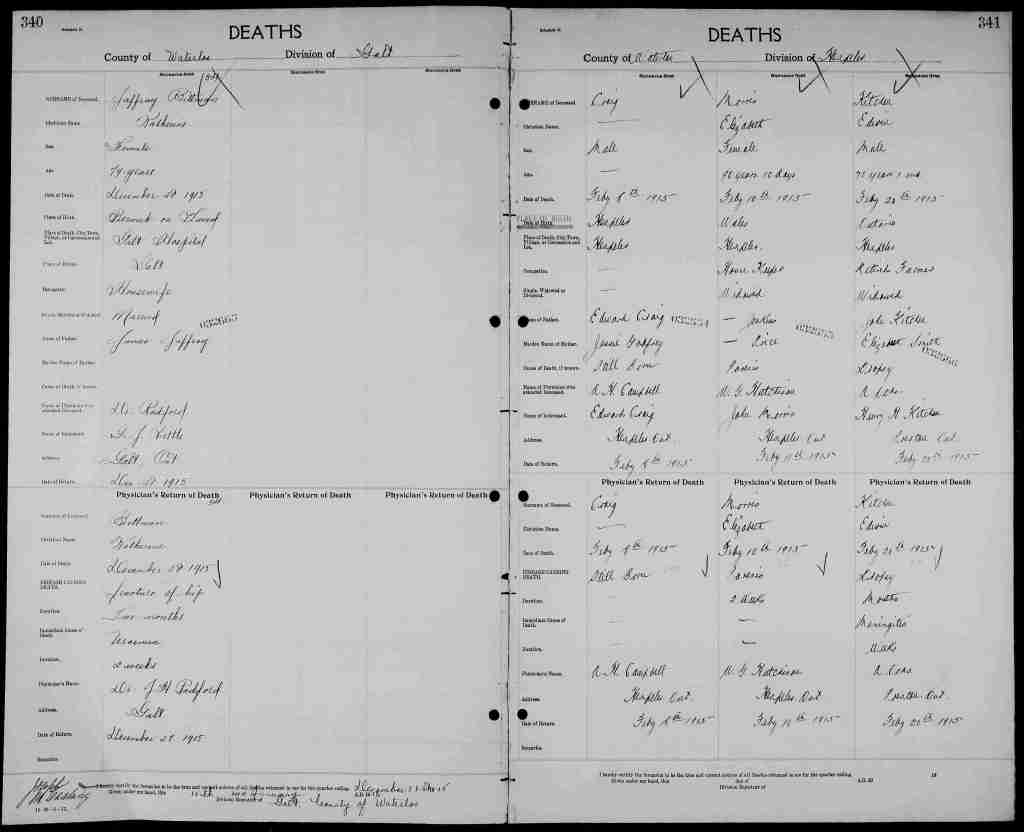 340
DEATHS
County of Waterloo Division of Galt
SURNAME of Deceased. Jaffray
Christian Name. Katherine
Sex. Female
Age. 79 years
Date of Death. December 1915
Place of Birth. Berwick on Tweed
Place of Death, City, Town, Village, or Concession and Lot. Galt Hospital
Place of Burial. Galt
Occupation. Housewife
Single, Married or Widowed. Married
032663
Name of Father. James Jaffray
Maiden Name of Mother.
Cause of Death, if known.
Name of Physician who attended Deceased. Dr. Radford
Name of Informant.
Address. Galt, Ont
Date of Return. Dec 1915
Physician's Return of Death Physician's Return of Death Physician's Return of Death
Surname of Deceased.
Christian Name. Katherine
Date of Death. December 1915
DISEASE CAUSING DEATH. Fracture of hip
Duration. Two months
Immediate Cause of Death. Uraemia
Duration. 2 weeks
Physician's Name. Dr. J H Radford
Address. Galt
Date of Return. December 1915
Remarks.
I hereby certify the foregoing to be the true and correct returns of all Deaths returned to me for the quarter ending December
Given under my hand, this day of January A.D. 19
Division Registrar of Galt County of Waterloo
341
DEATHS
County of Waterloo Division of Hespeler
SURNAME of Deceased. Craig Morris Kitchen
Christian Name. — Elizabeth Edwin
Sex. Male Female Male
Age. — 90 years 10 days 72 years 1 mo
Date of Death. Feby 8th 1915 Feby 10th 1915 Feby 20th 1915
PLACE OF BIRTH
Hespeler Wales Ontario
Place of Death, City, Town, Village, or Concession and Lot. Hespeler Hespeler. Hespeler
Occupation. — House Keeper Retired Farmer
Single, Widowed or Divorced. — Widowed Widowed
Name of Father. Edward Craig — Jenkins John Kitchen
Maiden Name of Mother. Jessie Godfrey — Price Elizabeth Smith
Cause of Death, if known. Still Born Paresis Dropsy
Name of Physician who attended Deceased. A. H. Campbell W. G. Hutchison
Name of Informant. Edward Craig John Morris Henry H Kitchen
Address. Hespeler Ont. Hespeler Ont Preston Ont.
Date of Return. Feby 8th 1915 Feby 11th 1915 Feby 1915
Physician's Return of Death Physician's Return of Death Physician's Return of Death
Surname of Deceased. Craig Morris Kitchen
Christian Name. — Elizabeth Edwin
Date of Death. Feby 8th 1915 Feby 10th 1915 Feby 20th 1915
DISEASE CAUSING DEATH. Still Born Paresis Dropsy
Duration. — 2 weeks Months
Immediate Cause of Death. — — Meningitis
Duration. — — Weeks
Physician's Name. A. H. Campbell W. G. Hutchison
Address. Hespeler Ont. Hespeler Ont Preston Ont.
Date of Return. Feby 8th 1915 Feby 1915 Feby 1915
Remarks.
I hereby certify the foregoing to be the true and correct returns of all Deaths returned to me for the quarter ending 19
Given under my hand, this day of A.D. 19
Division Registrar of